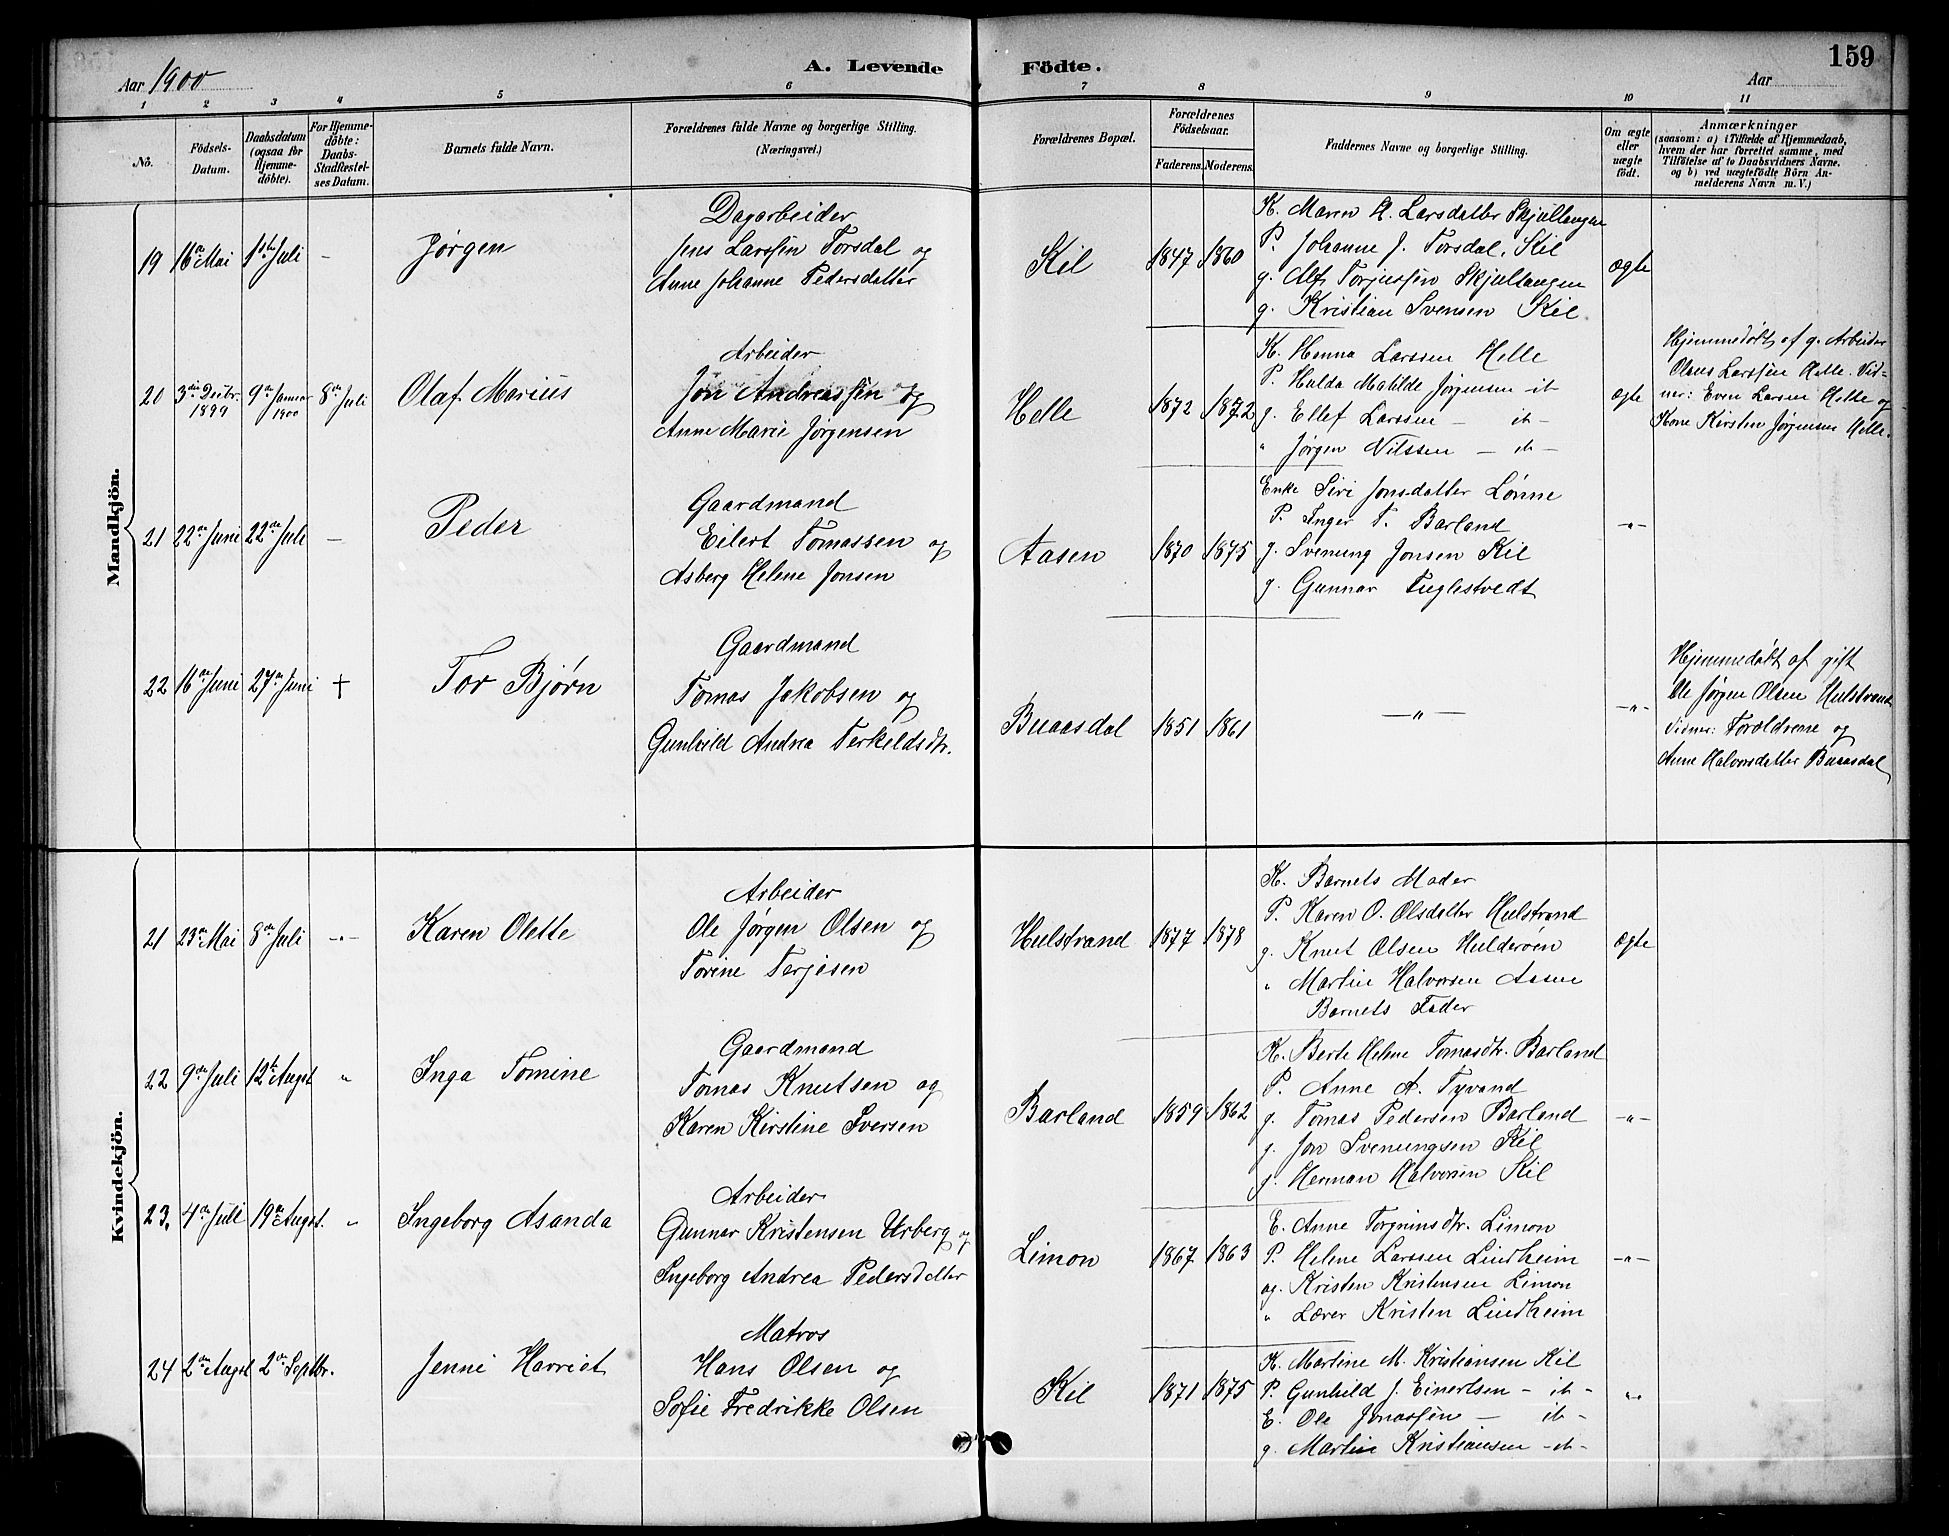 159
Aar 1900
A. Levende Födte.
Aar
1 2 3 4 5 6 7 8 9 10 11
No.
Födsels-Datum.
Daabsdatum (ogsaa for Hjemme-döbte).
For Hjemme-döbte: Daabs-Stadfæstel-ses Datum.
Barnets fulde Navn.
Forældrenes fulde Navne og borgerlige Stilling. (Næringsvei.)
Forældrenes Bopæl.
Forældrenes Födselsaar.
Faderens. Moderens.
Faddernes Navne og borgerlige Stilling.
Om ægte eller uægte födt.
Anmærkninger
(saasom: a) i Tilfælde af Hjemmedaab,
hvem der har forrettet samme, med
Tilföielse af to Daabsvidners Navne,
og b) ved uægtefödte Börn An-
melderens Navn m. V.)
Mandkjön.
19 16de Mai 1ste Juli - Jørgen
Dagarbeider
Jens Larssen Torsdal og
Anne Johanne Pedersdatter
Kil 1847 1860
K. Maren A. Larsdatter Skjultangen
P. Johanne J. Torsdal, Kil
g. Alf Torjussen Skjultangen
g. Kristian Svensen Kil
ægte
20 3die Decbr. 1899 9de Januar 1900 8de Juli Olaf Marius
Arbeider
Jon Andreassen og
Anne Marie Jørgensen
Helle 1872 1872
K. Hanna Larssen Helle
P. Hulda Matilde Jørgensen it-
g. Ellef Larssen - it-
" Jørgen Nilssen - it-
ægte
Hjemmedøbt af g. Arbeider
Olaus Larssen Helle. Vid-
ner: Even Larsen Helle og
Kone Kirsten Jørgensen Helle.
21 22de Juni 22de Juli - Peder
Gaardmand
Eilert Tomassen og
Asberg Helene Jonsen
Aasen 1870 1875
Enke Siri Jonsdatter Lønne
P. Inger T. Barland
g. Svenung Jonsen Kil
g. Gunnar Fuglestvedt
-"-
22 16de Juni 27de Juni † Tor Bjørn
Gaardmand
Tomas Jakobsen og
Gunhild Andrea Terkeldsdtr.
Buaasdal 1851 1861
-"-
-"-
Hjemmedøbt af gift
Ole Jørgen Olsen Hulstrand
Vidner: Forældrene og
Anne Halvorsdatter Buaasdal
Kvindekjön.
21 23de Mai 8de Juli -"- Karen Olette
Arbeider
Ole Jørgen Olsen og
Torine Terjesen
Hulstrand 1877 1878
K. Barnets Moder
P. Karen O. Olsdatter Hulstrand
g. Knut Olsen Hulderøen
" Martin Halvorsen Aasen
Barnets Fader
ægte
22 9de Juli 12te Augst " Inga Tomine
Gaardmand
Tomas Knutsen og
Karen Kirstine Iversen
Barland 1859 1862
K. Berte Helene Tomasdtr. Barland
P. Anne A. Tyvand
g. Tomas Pedersen Barland
g. Jon Svenungsen Kil
g. Herman Halvorsen Kil
-"-
23. 4de Juli 19de Augst. " Ingeborg Asanda
Arbeider
Gunnar Kristensen Urberg og
Ingeborg Andrea Pedersdatter
Limon 1867 1863
E. Anne Torgrimsdtr. Limon
P. Helene Larssen Lindheim
og. Kristen Kristensen Limon
" Lærer Kristen Lindheim
-"-
24 2den Augst 2den Septbr. Jenni Harriet
Matros
Hans Olsen og
Sofie Fredrikke Olsen
Kil 1871 1875
K. Martine M. Kristiansen Kil
P. Gunhild J. Einertsen - it-
E. Ole Jonassen - it-
g. Martin Kristiansen - it-
"